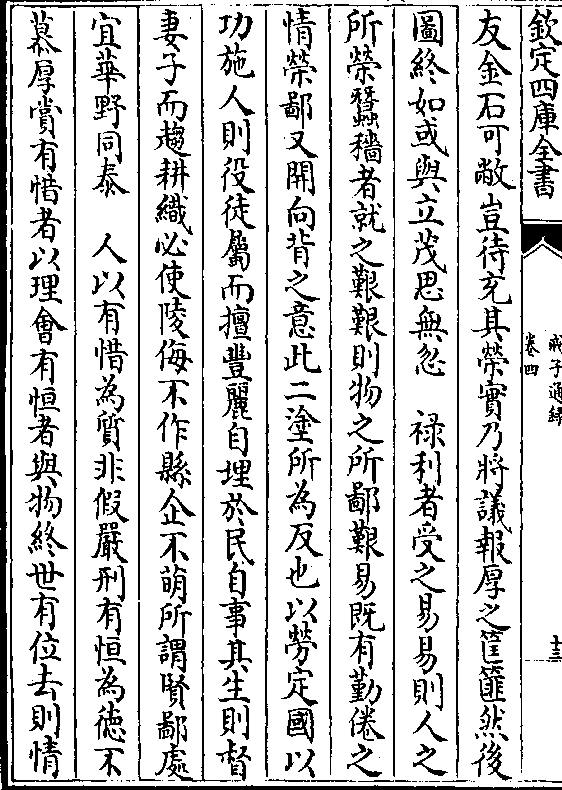 欽定四庫全書
戒子通録
卷四
十三
友金石可敝豈待充其榮實乃將議報厚之筐篚然後
圖終如或與立茂思無忽　禄利者受之易易則人之
所榮蠶穡者就之艱艱則物之所鄙艱易既有勤倦之
情榮鄙又開向背之意此二塗所為反也以勞定國以
功施人則役徒屬而擅豐麗自埋於民自事其生則督
妻子而趨耕織必使陵侮不作縣企不萌所謂賢鄙處
宜華野同泰　人以有惜為質非假嚴刑有恒為徳不
慕厚賞有惜者以理㑹有恒者與物終世有位去則情